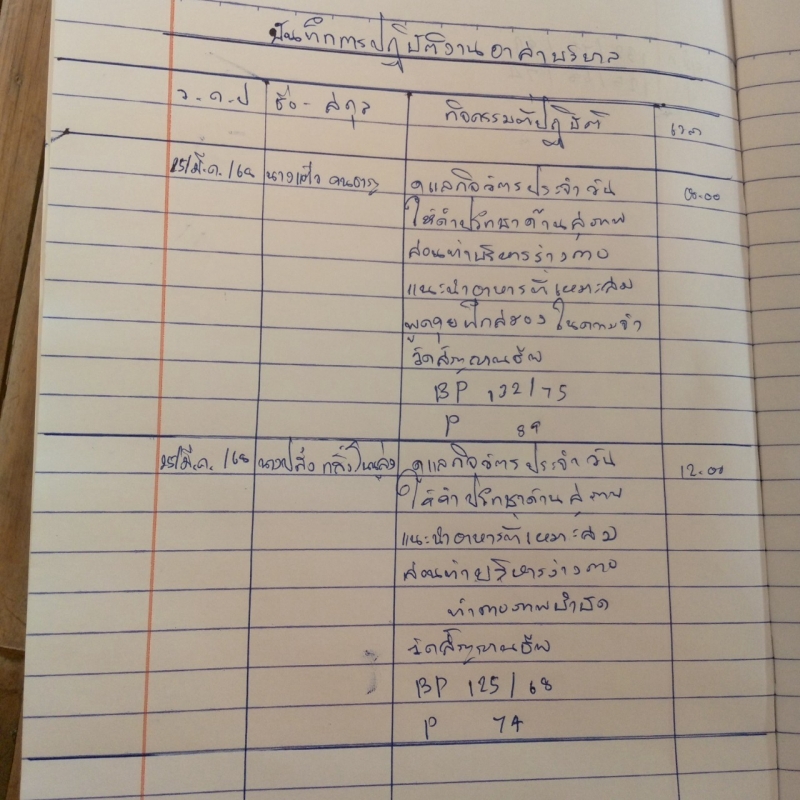 บันทึกการปฏิบัติงาน อาสาบริบาล
ว.ด.ป ชื่อ - สกุล กิจกรรมที่ปฏิบัติ เวลา
25/มี.ค./68 นางแก้ว ดูแลกิจวัตรประจำวัน 08.00
ให้คำปรึกษาด้านสุขภาพ
สอนท่าบริหารร่างกาย
แนะนำอาหารที่เหมาะสม
พูดคุยฝึกสมอง ในความจำ
วัดสัญญาณชีพ
BP 132/75
P 89
25/มี.ค./68 ดูแลกิจวัตรประจำวัน 12.00
ให้คำปรึกษาด้านสุขภาพ
แนะนำอาหารที่เหมาะสม
สอนท่าบริหารร่างกาย
ทำกายภาพบำบัด
วัดสัญญาณชีพ
BP 125/68
P 74